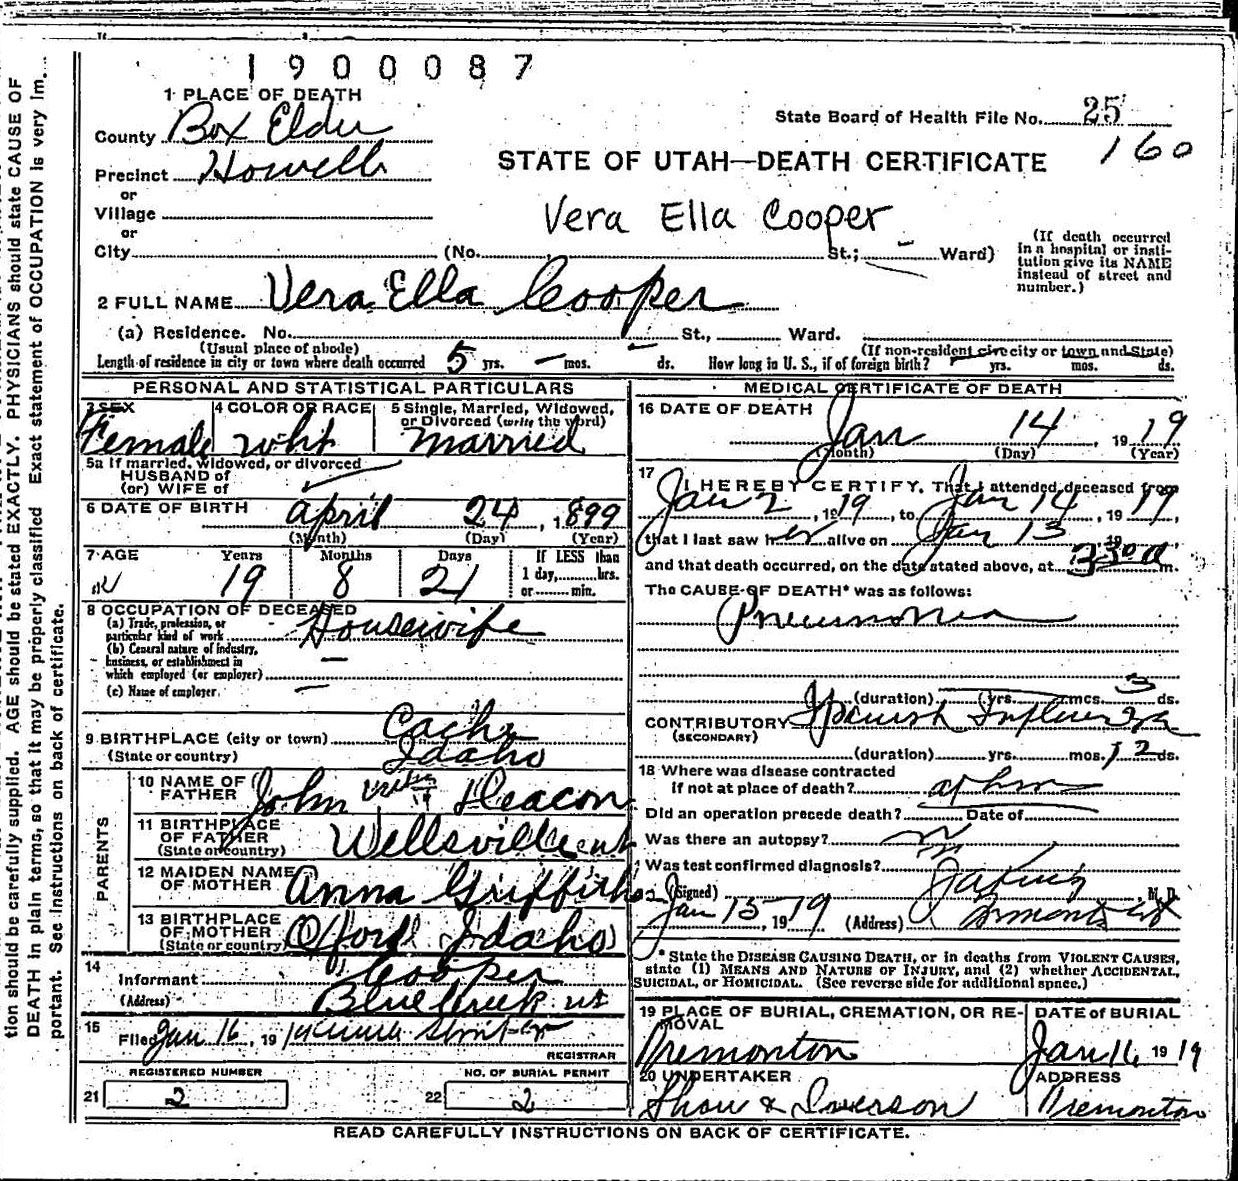 1900087
1 PLACE OF DEATH
County Box Elder
State Board of Health File No. 25
160
Precinct Howell
STATE OF UTAH—DEATH CERTIFICATE
or
Village
Vera Ella Cooper
or
City (No. St.; Ward)
(If death occurred in a hospital or institution give its NAME instead of street and number.)
2 FULL NAME Vera Ella Cooper
(a) Residence. No. St., Ward.
(Usual place of abode) (If non-resident give city or town and State)
Length of residence in city or town where death occurred 5 yrs. — mos. ds. How long in U. S., if of foreign birth? yrs. mos. ds.
PERSONAL AND STATISTICAL PARTICULARS
3 SEX Female
4 COLOR OR RACE wht
5 Single, Married, Widowed, or Divorced (write the word) married
5a If married, widowed, or divorced
HUSBAND of
(or) WIFE of
6 DATE OF BIRTH april 24, 1899
(Month) (Day) (Year)
7 AGE Years Months Days If LESS than
19 8 21 1 day, hrs.
or min.
8 OCCUPATION OF DECEASED
(a) Trade, profession, or particular kind of work Housewife
(b) General nature of industry, business, or establishment in which employed (or employer) —
(c) Name of employer —
9 BIRTHPLACE (city or town)
(State or country) Idaho
PARENTS
10 NAME OF FATHER John Deacon
11 BIRTHPLACE OF FATHER (State or country) Wellsville ut
12 MAIDEN NAME OF MOTHER Anna Griffiths
13 BIRTHPLACE OF MOTHER (State or country) Idaho
14 Informant Cooper
(Address) Blue Creek ut
15 Filed Jan 16, 19
REGISTRAR
REGISTERED NUMBER
21 2
NO. OF BURIAL PERMIT
22 2
MEDICAL CERTIFICATE OF DEATH
16 DATE OF DEATH Jan 14, 1919
(Month) (Day) (Year)
17 I HEREBY CERTIFY, That I attended deceased from
Jan 2, 1919, to Jan 14, 1919,
that I last saw her alive on Jan 13 19
and that death occurred, on the date stated above, at 330 a m.
The CAUSE OF DEATH* was as follows:
Pneumonia
(duration) yrs. mos. 3 ds.
CONTRIBUTORY Spanish Influenza
(SECONDARY)
(duration) yrs. mos. 12 ds.
18 Where was disease contracted
if not at place of death? at home
Did an operation precede death? Date of
Was there an autopsy?
Was test confirmed diagnosis?
(Signed) M. D.
Jan 15 1919 (Address)
* State the DISEASE CAUSING DEATH, or in deaths from VIOLENT CAUSES,
state (1) MEANS AND NATURE OF INJURY, and (2) whether ACCIDENTAL,
SUICIDAL, or HOMICIDAL. (See reverse side for additional space.)
19 PLACE OF BURIAL, CREMATION, OR REMOVAL Tremonton
DATE OF BURIAL Jan 16 1919
20 UNDERTAKER Shaw & Iverson
ADDRESS Tremonton
READ CAREFULLY INSTRUCTIONS ON BACK OF CERTIFICATE.
tion should be carefully supplied. AGE should be stated EXACTLY. PHYSICIANS should state CAUSE OF
DEATH in plain terms, so that it may be properly classified Exact statement of OCCUPATION is very im-
portant. See instructions on back of certificate.